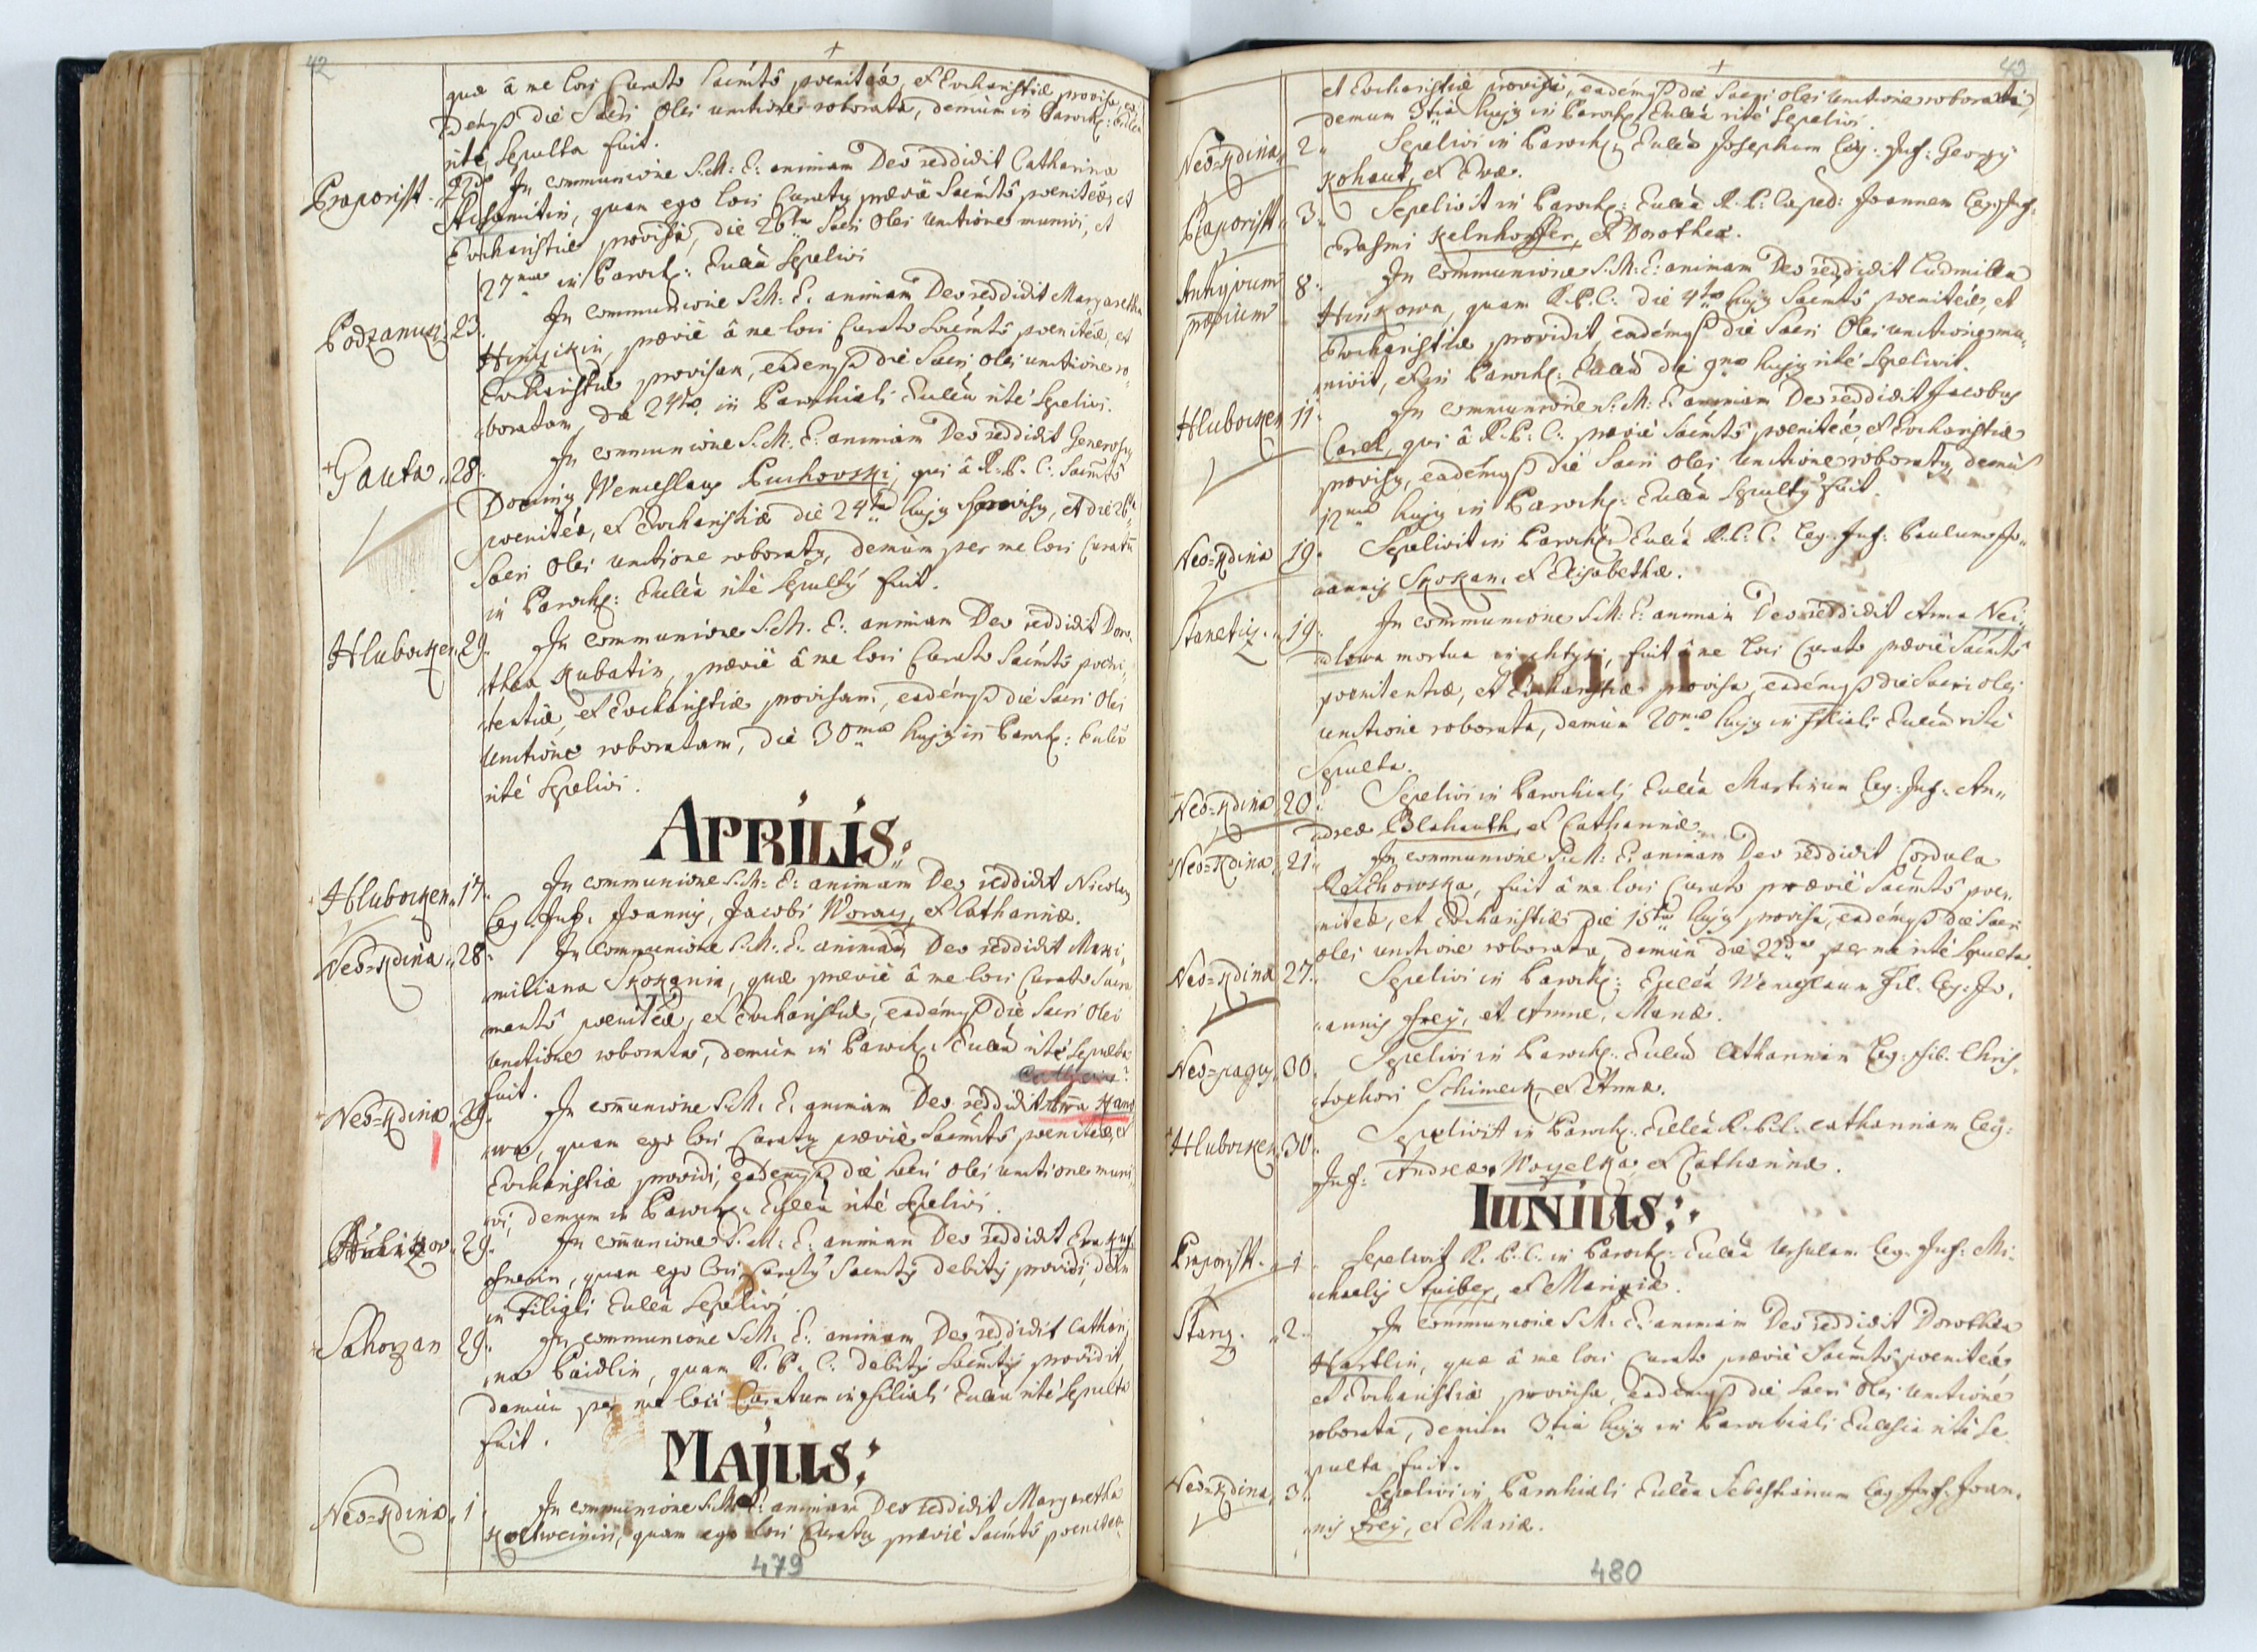 42
quæ â me loci Curato Sacmtô pœnitæ, et Eucharistiæ provisa, ea
demqꝫ die Sacri Olei unctione roborata, demùm in Paroch: Eccla
ritè Sepulta fuit.
Praporisst. 22do In communione S.M.E. animam Deo reddidit Catharina
quam ego loci Curatus præviè Sacmtô pœniteæ, et
Eucharistiæ provisâ, die 26ta Sacri Olei unctione munivi, et
27ma in Paroch: Eccla Sepelivi
Podzamcz. 23. In communione S.M.E. animam Deo reddidit Margaretha
præviè â me loci Curato Sacmtô pœniteæ, et
Eucharistiæ provisam, eademqꝫ die Sacri Olei unctione ro
boratam, die 24ta in Parochiali Eccla ritè Sepelivi.
Gauta 28. In communione S.M.E. animam Deo reddidit Generosus
Dominus Wenceslaus Puchovski, qui â R.P.C. Sacmtô
pœniteæ, et Eucharistiæ die 24ta hujus provisus, et die 26ta
Sacri Olei unctione roboratus, demùm per me loci Curatũ
in Paroch: Eccla ritè Sepultus fuit.
Hluboken 29. In communione S.M.E. animam Deo reddidit Doro
thea Kubatin, præviè â me loci Curato Sacmtô pœni
tentiæ, et Eucharistiæ provisam, eademqꝫ die Sacri Olei
Unctione roboratam, die 30ma hujus in Paroch: Eccla
ritè Sepelivi.
APRILIS:
Hluboken 17. In communione S.M.E. animam Deo reddidit Nicolaus
Leg. Inf. Joannis, Jacobi Woray, et Catharinæ.
Neo=Kdina 28. In Communione S.M.E. animam Deo reddidit Maxi
miliana Skokanin, quæ præviè â me loci Curato Sacra
mentô pœniteæ, et Eucharistiæ, eademqꝫ die Sacri Olei
Unctione roborata, demùm in Paroch. Eccla ritè Sepulta
fuit.
Neo=Kdina 29. In com̃unione S.M.E. animam Deo reddidit Anna
quam ego loci Curatus præviè Sacmtô pœniteæ, et
Eucharistiæ providi, eademqꝫ die Sacri Olei unctione muni
vi, demum in Paroch: Eccla ritè Sepelivi.
29. In com̃unione S.M.E. animam Deo reddidit Eva
quam ego loci Curatus Sacmtis debitis providi, dein
in Filiali Eccla Sepelivi.
Sahorzan 29. In communione S.M.E. animam Deo reddidit Cathari
na Paidlin, quam R.P.C. debitis Sacmtis providit,
demùm per me loci Curatum in filiali Eccla ritè Sepulta
fuit.
MAJUS:
Neo=Kdina 1. In communione S.M.E. animam Deo reddidit Margaretha
quam ego loci Curatus præviè Sacmtô pœniteæ
479
43
et Eucharistiæ provisâ, eademqꝫ die Sacri Olei Unctione roborata,
demum 3tia hujus in Paroch: Eccla ritè Sepelivi.
Neo=Kdina 2. Sepelivi in Paroch: Eccla Josephum Leg: Inf: Georgij
Kohaut, et Evæ.
Praporisst. 3. Sepelivit in Paroch: Eccla R.P. Caped: Joannem Leg. Inf.
Erasmi Kelnhoffer, et Dorotheæ.
Antiquum 8. In communione S.M.E. animam Deo reddidit Ludmilla
prædium quam R.P.C. die 4ta hujus Sacmtô pœniteæ, et
Eucharistiæ providit, eademqꝫ die Sacri Olei unctione mu
nivit, et in Paroch: Eccla die 9na hujus ritè Sepelivit.
Hluboken 11. In communione S.M.E. animam Deo reddidit Jacobus
Carel, qui â R.P.C. præviè Sacmtô pœniteæ, et Eucharistiæ
provisus, eademqꝫ die Sacri Olei Unctione roboratus, demũ
12ma hujus in Paroch: Eccla Sepultus fuit.
Neo=Kdina 19. Sepelivit in Paroch: Eccla R.P.C. Leg. Inf. Paulum Jo
annis Skokan, et Elisabethæ.
Stanetiz. 19. In communione S.M.E. animam Deo reddidit Anna Nei
dlowa mortua fuit â me loci Curato præviè Sacmtô
pœnitentiæ, et Eucharistiæ provisa, eademqꝫ die Sacri olei
unctione roborata, demùm 20ma hujus in filiali Eccla ritè
Sepulta.
Neo=Kdina 20. Sepelivi in Parochiali Eccla Martinum Leg. Inf. An
dreæ Blahauth, et Catharinæ.
Neo=Kdina 21. In communione S.M.E. animam Deo reddidit Cordula
fuit â me loci Curato præviè Sacmtô pœ
niteæ, et Eucharistiæ die 15ta hujus provisa, eademqꝫ die Sacri
olei unctione roborata, demùm die 22da per me ritè Sepulta.
Neo=Kdina 27. Sepelivi in Paroch: Eccla Wenceslaum Fil. Leg. Jo
annis Frey, et Annæ, Mariæ.
Neo=pagus 30. Sepelivi in Paroch: Eccla Catharinam Leg. fil. Chris
tophori Schimeck, et Annæ.
Hluboken 30. Sepelivit in Paroch: Eccla R.P.C. Catharinam Leg:
Inf: Andreæ Woyelka, et Catharinæ.
IUNIUS:
Praporisst. 1. Sepelivit R.P.C. in Paroch: Eccla Ursulam Leg. Inf: Mi
chaelis Stuibex, et Mariæ.
Stanz. 2. In communione S.M.E. animam Deo reddidit Dorothea
Hartlin, quæ â me loci Curato præviè Sacmtô pœniteæ
et Eucharistiæ provisa, eademqꝫ die Sacri Olei Unctione
roborata, demùm 3tia hujus in Parochiali Ecclesia ritè Se
pulta fuit.
Neo=Kdina 3. Sepelivi in Parochiali Eccla Sebastianum Leg. Inf. Joan
nis Frey, et Mariæ.
480